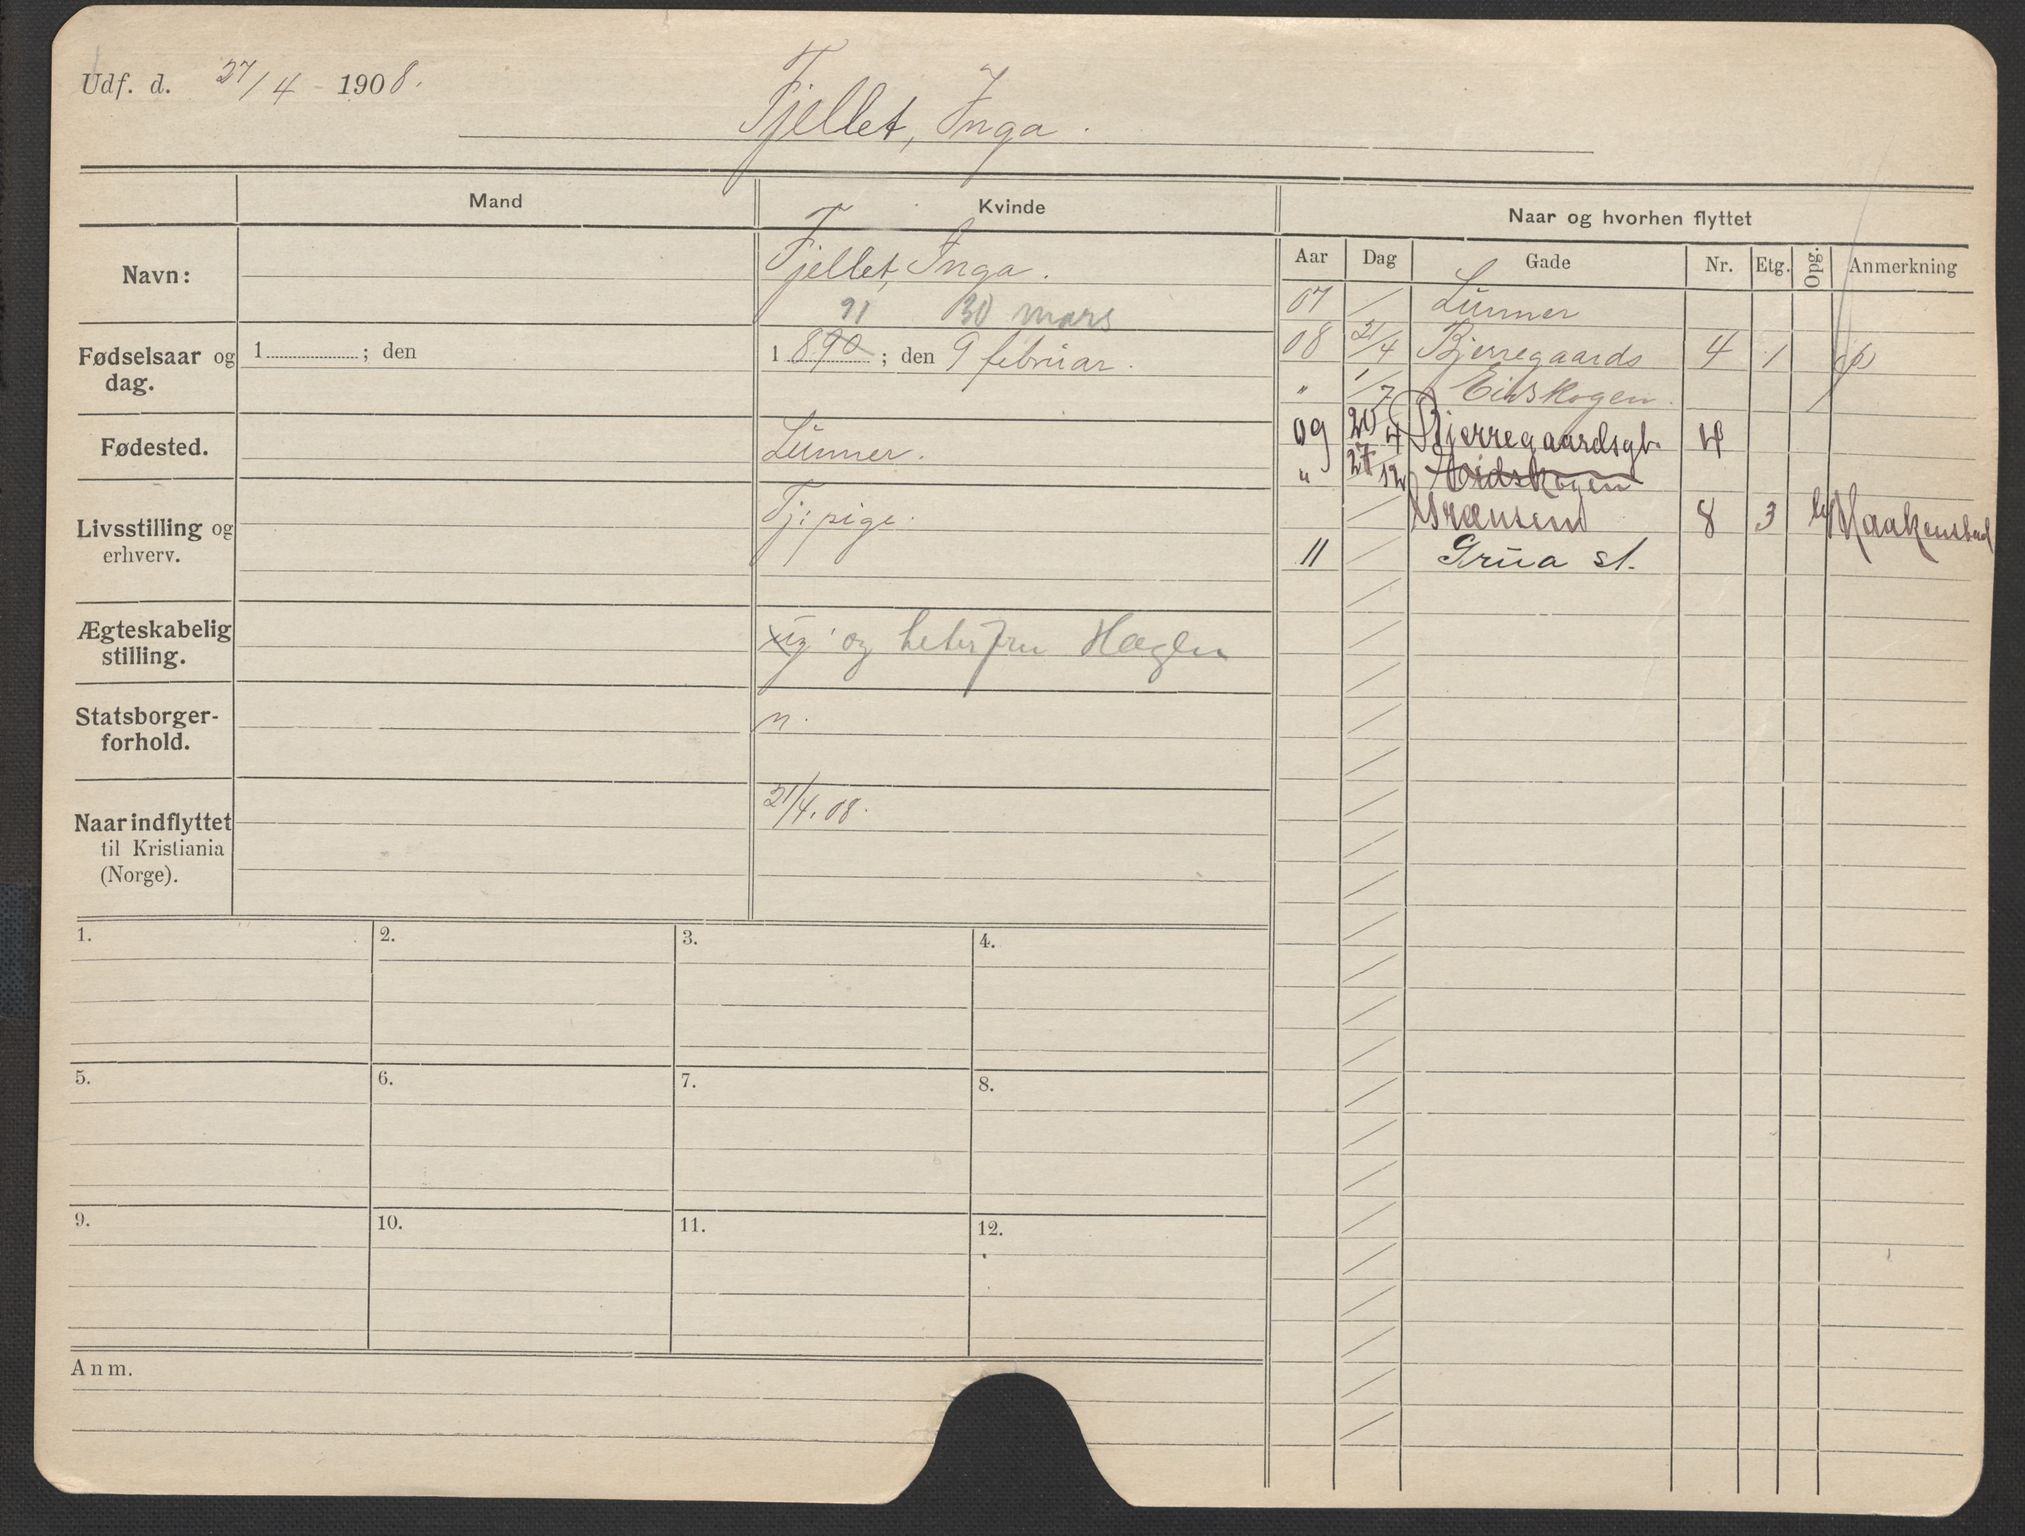 Udf. d. 27/4 - 1908.
Fjellet, Inga.
Mand
Kvinde
Naar og hvorhen flyttet
Navn:
Fjellet, Inga.
91 30 mars
Fødselsaar og dag.
1 ; den
1 890 ; den 9 februar.
Fødested.
Lunner.
Livsstilling og erhverv.
Tj: pige.
Ægteskabelig stilling.
ug: og heter fru Hagen
Statsborger-forhold.
n.
Naar indflyttet til Kristiania (Norge).
21/4. 08.
Aar Dag Gade Nr. Etg. Opg. Anmerkning
07 / Lunner
08 21/4 Bjerregaards 4 1
" 1/7 Eidskogen.
09 20/4 Bjerregaardsgt. 4
" 27/12 Eidskogen
/ 8 3 Haakenstad
11 / Grua st.
1. 2. 3. 4.
5. 6. 7. 8.
9. 10. 11. 12.
Anm.